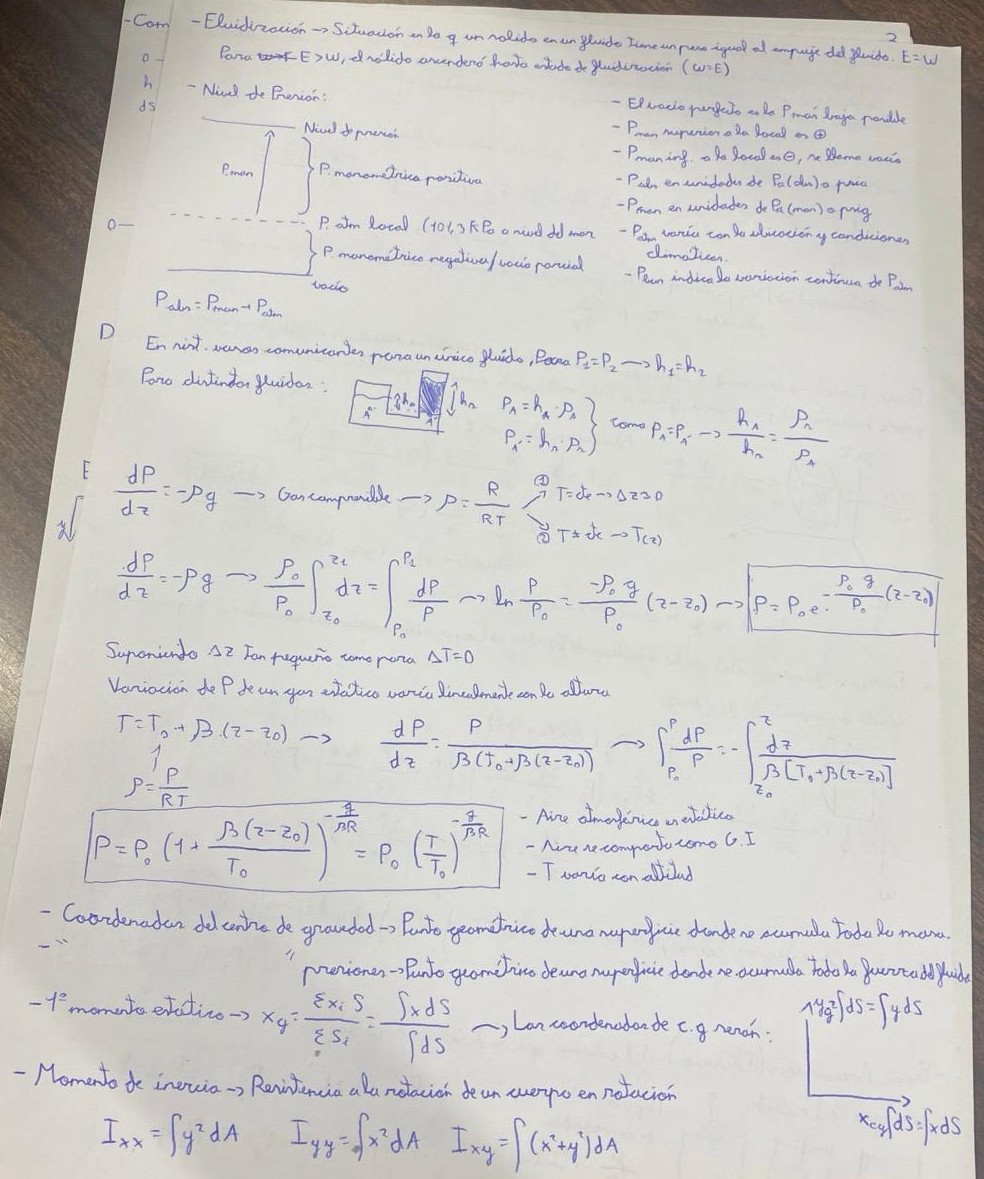 2
- Com
o -
h
ds
- Eluidización → Situación en la q un solido en un fluido tiene un peso igual al empuje del fluido. E = W
Para E > W, el sólido ascenderá hasta estado de fluidización (W=E)
- Nivel de Presión:
Nivel de presión
P.man
P. manométrica positiva
0 —
P. atm local (101,3 kPa a nivel del mar
P. manométrica negativa/vacío parcial
vacío
P_abs = P_man + P_atm
- El vacío perfecto es la P más baja posible
- P_man superior a la local es ⊕
- P_man inf. a la local es ⊖, se llama vacío
- P_abs en unidades de Pa(abs) o psia
- P_man en unidades de Pa(man) o psig
- P_atm varía con la ubicación y condiciones
climáticas.
- indica la variación contínua de P_atm
D
En sist. vasos comunicantes para un único fluido, Para P₁=P₂ → h₁=h₂
Para distintos fluidos:
P_A = h_A · ρ_A
P_A' = h_n · ρ_n
como P_A = P_A' → h_A/h_n = ρ_n/ρ_A
E
dP/dz = -ρg → Gas compresible → ρ = R/RT
① T = cte → Δz≃0
② T ≠ cte → T(z)
dP/dz = -ρg → ρ₀/P₀ ∫_{z₀}^{z₁} dz = ∫_{P₀}^{P₁} dP/P → ln P/P₀ = -ρ₀ g/P₀ (z-z₀) → P = P₀ e^{-ρ₀ g/P₀ (z-z₀)}
Suponiendo Δz tan pequeño como para ΔT=0
Variación de P de un gas estático varía linealmente con la altura
T = T₀ + β·(z-z₀) → dP/dz = P/β(T₀+β(z-z₀)) → ∫_{P₀}^{P} dP/P = -∫_{z₀}^{z} dz/β[T₀+β(z-z₀)]
ρ = P/RT
P = P₀ (1 + β(z-z₀)/T₀)^{-g/βR} = P₀ (T/T₀)^{-g/βR}
- Aire atmosférico es estático
- Aire se comporta como G.I
- T varía con altitud
- Coordenadas del centro de gravedad → Punto geométrico de una superficie donde se acumula toda la masa.
- " " presiones → Punto geométrico de una superficie donde se acumula toda la fuerza del fluido
- 1º momento estático → x_g = Σx_i S/ΣS_i = ∫x dS/∫dS → Las coordenadas de c.g serán:
y_g ∫dS = ∫y dS
x_cg ∫dS = ∫x dS
- Momento de inercia → Resistencia a la rotación de un cuerpo en rotación
I_xx = ∫y² dA I_yy = ∫x² dA I_xy = ∫(x²+y²) dA